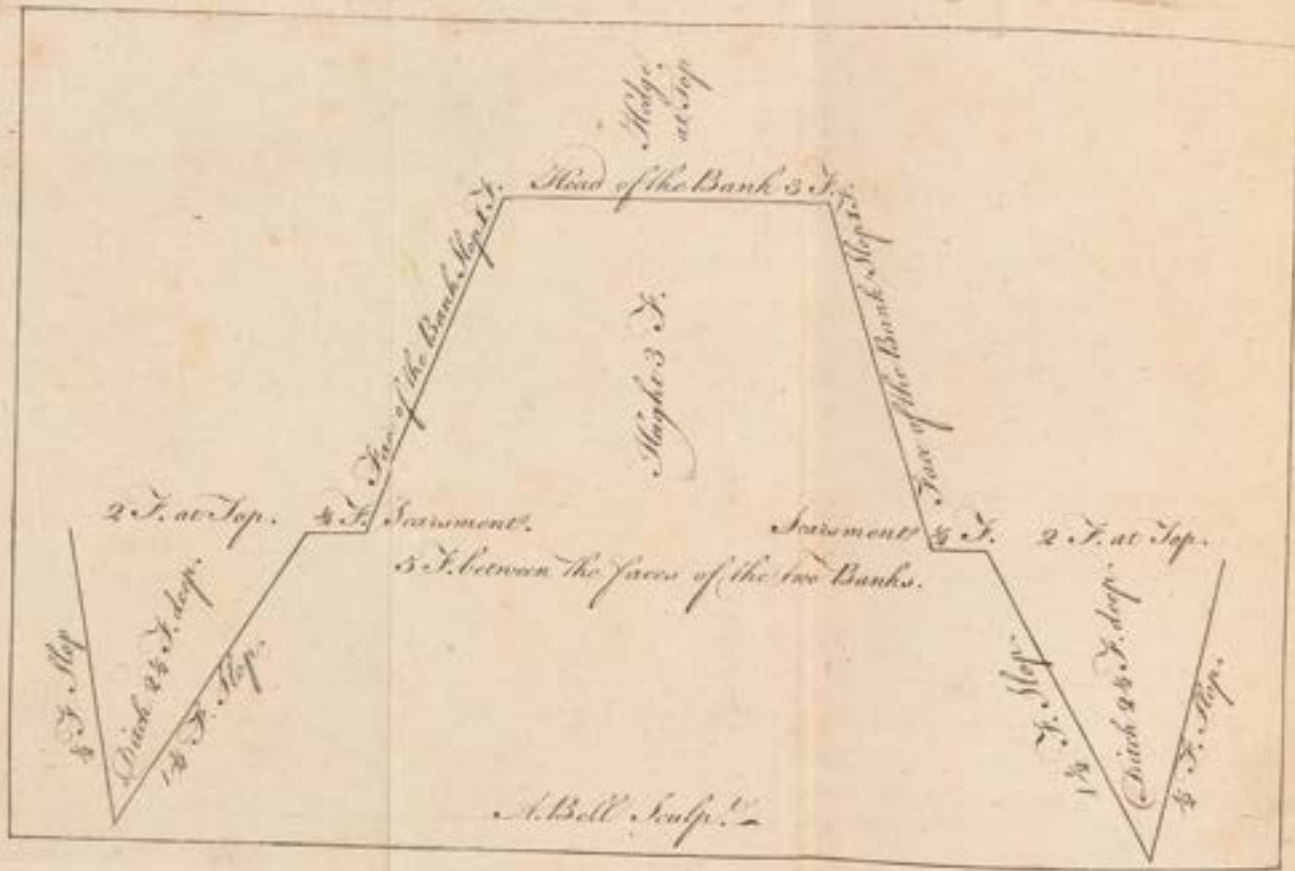 Hedge
at top
Head of the Bank 3 F.
Face of the Bank Slop 1 F.
Face of the Bank Slop 1 F.
Height 3 F.
2 F. at Top. ½ F. Scarsment.
Scarsment ½ F. 2 F. at Top.
5 F. between the faces of the two Banks.
½ F. Slop
Ditch 2½ F. deep.
1½ F. Slop.
1½ F. Slop.
Ditch 2½ F. deep.
½ F. Slop.
A. Bell Sculp.ᵗ